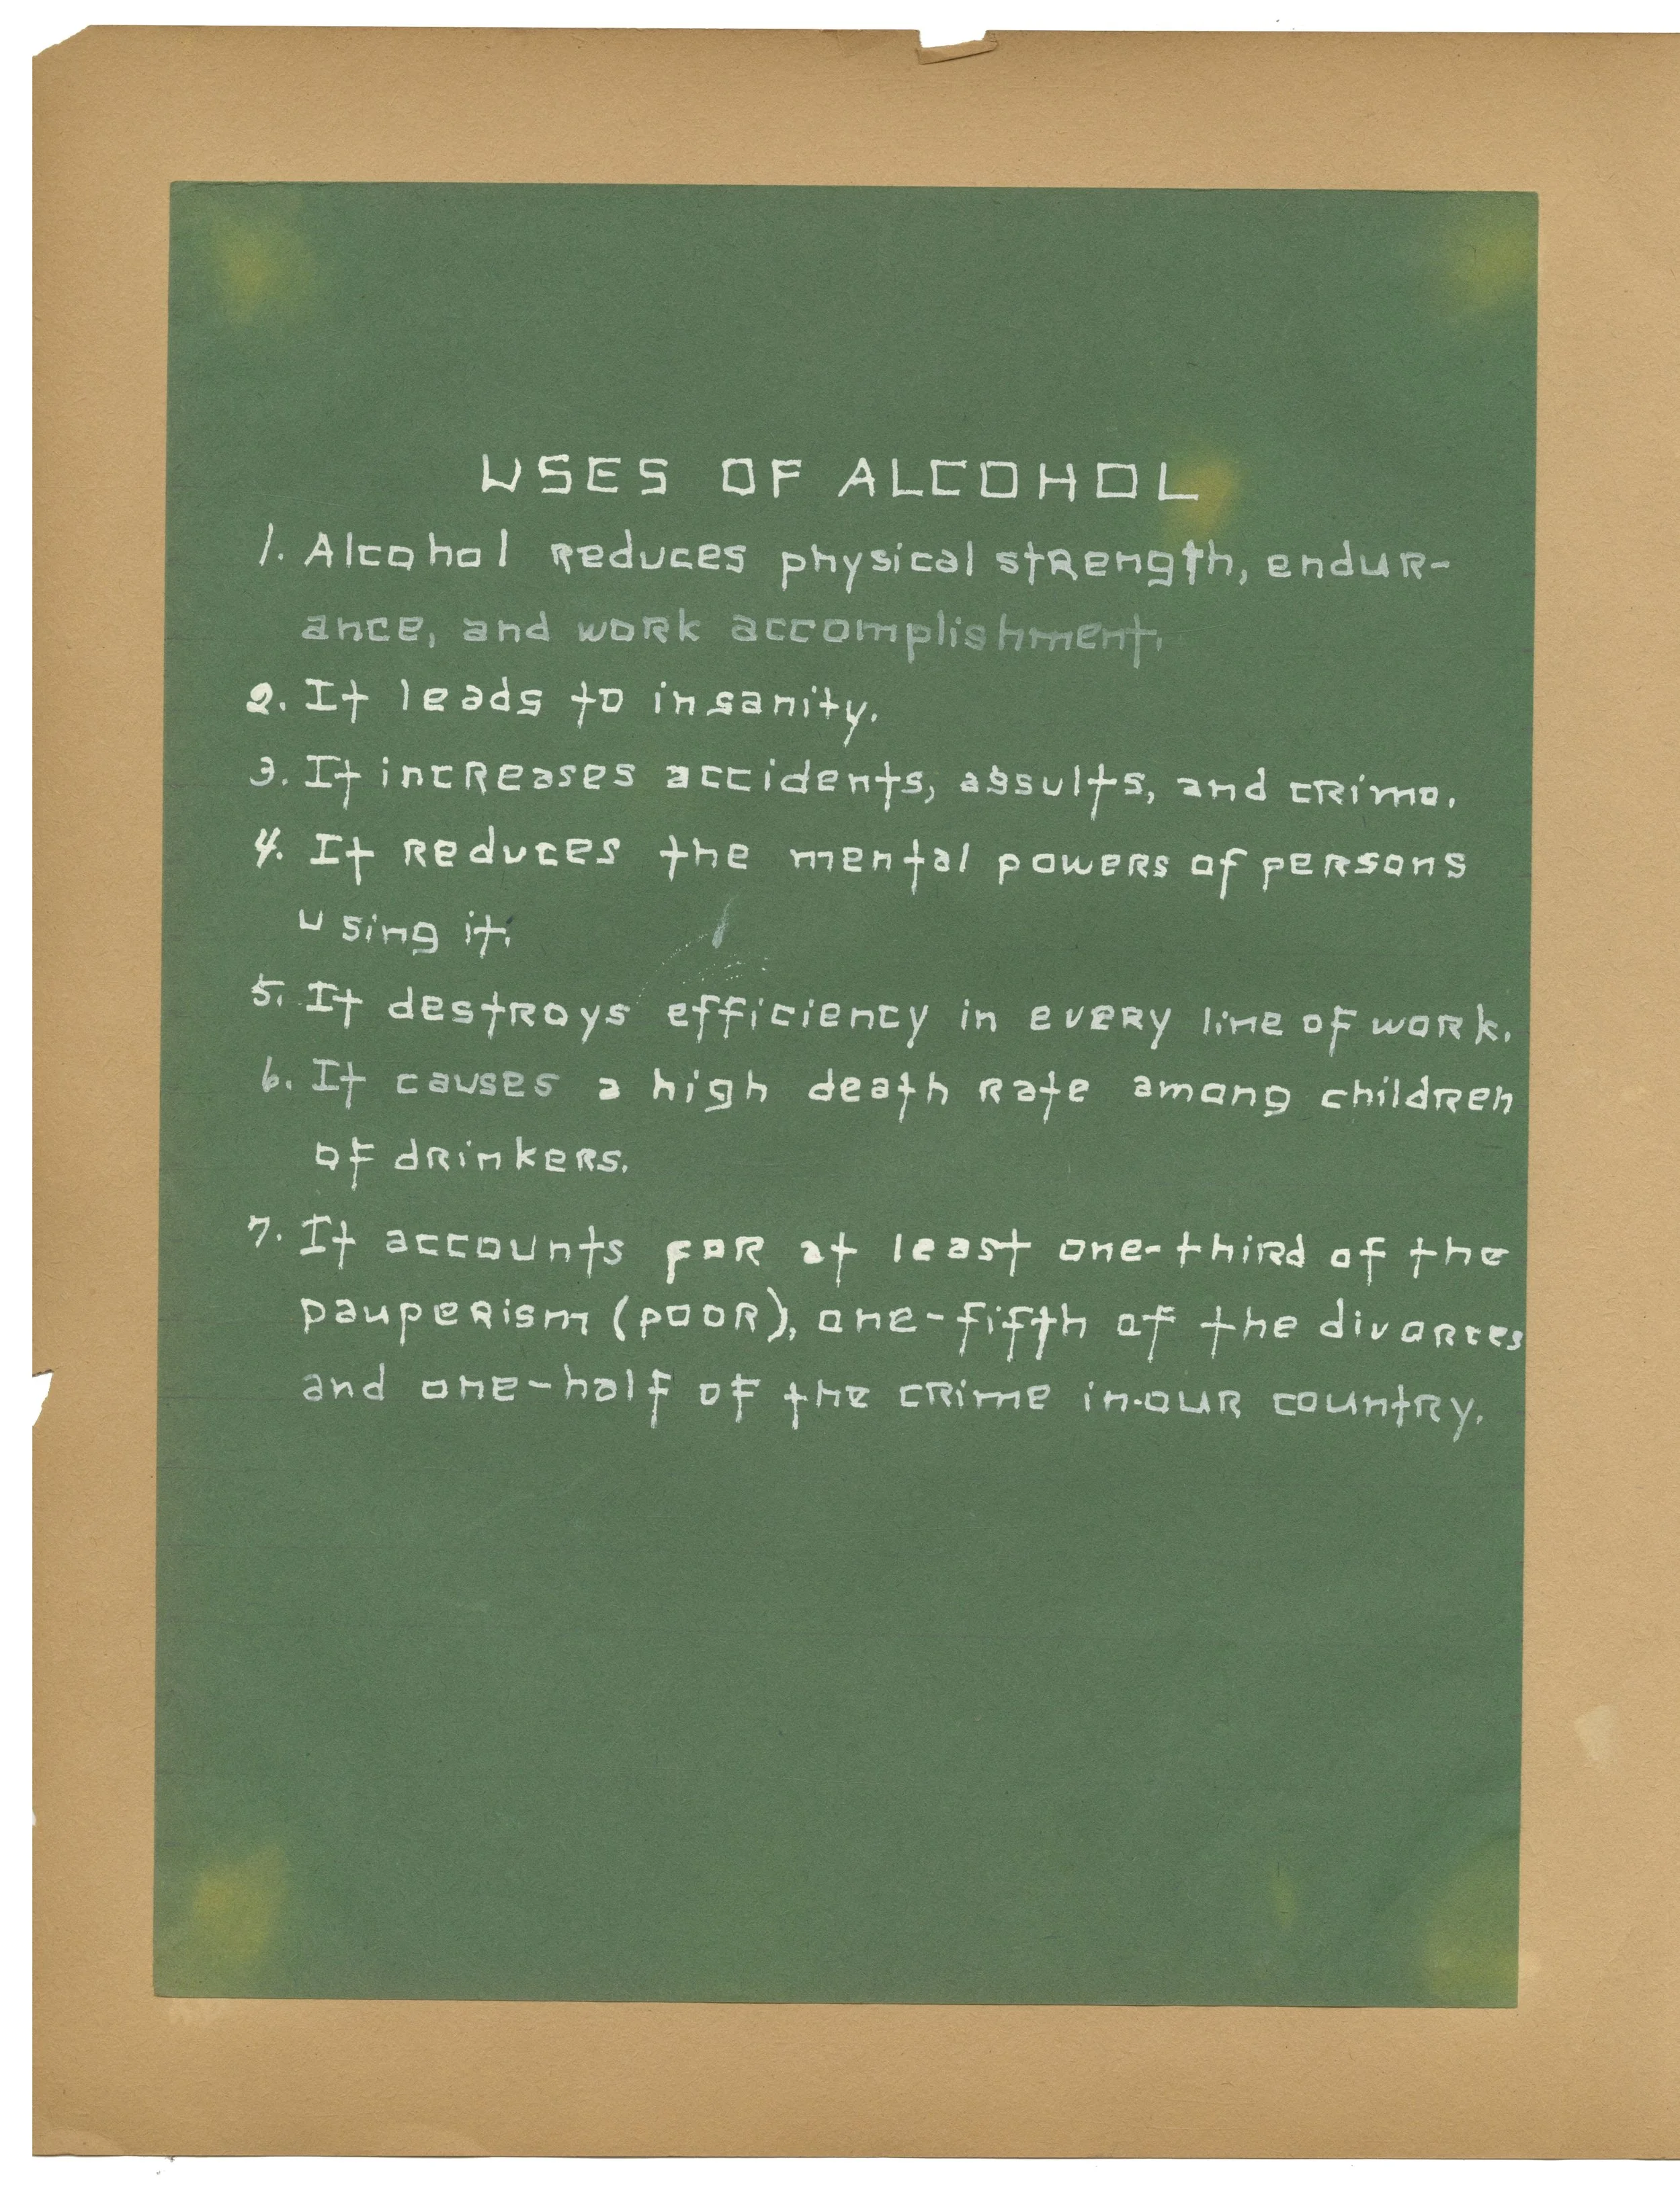 USES OF ALCOHOL
1. Alcohol reduces physical strength, endur-
ance, and work accomplishment.
2. It leads to insanity.
3. It increases accidents, assults, and crime.
4. It reduces the mental powers of persons
using it.
5. It destroys efficiency in every line of work.
6. It causes a high death rate among children
of drinkers.
7. It accounts for at least one-third of the
pauperism (poor), one-fifth of the divorces
and one-half of the crime in our country.